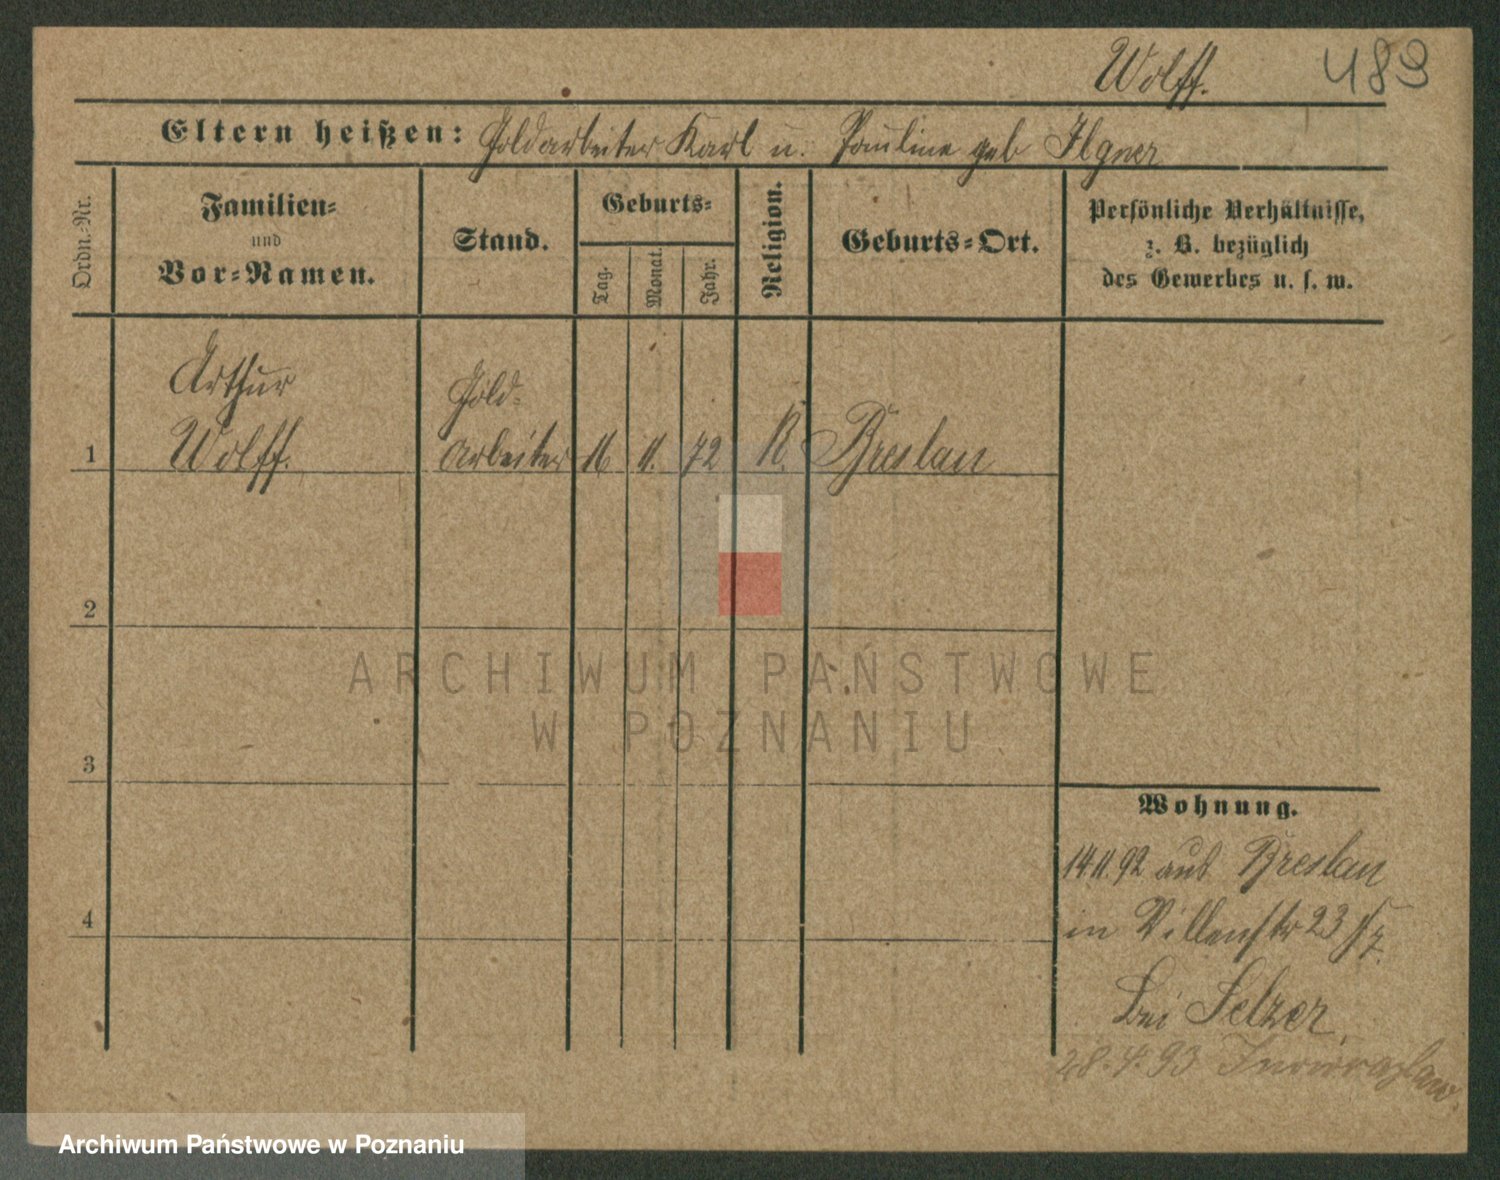 Wolff. 489
Eltern heißen: Goldarbeiter Karl u. Pauline geb Ilgner
Ordn.-Nr.
Familien-
und
Vor-Namen.
Stand.
Geburts-
Tag.
Monat.
Jahr.
Religion.
Geburts-Ort.
Persönliche Verhältnisse,
z. B. bezüglich
des Gewerbes u. s. w.
Arthur
Wolff.
Gold-
arbeiter
1
16
11.
72
K.
Breslau
2
3
4
Wohnung.
14.11.92 aus Breslau
in Villenstr 23
bei Selzer
28.4.93 Inowrazlaw
ARCHIWUM PAŃSTWOWE
W POZNANIU
Archiwum Państwowe w Poznaniu